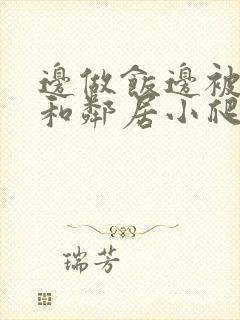 邊做飯邊被
和鄰居小爬
瑞芳